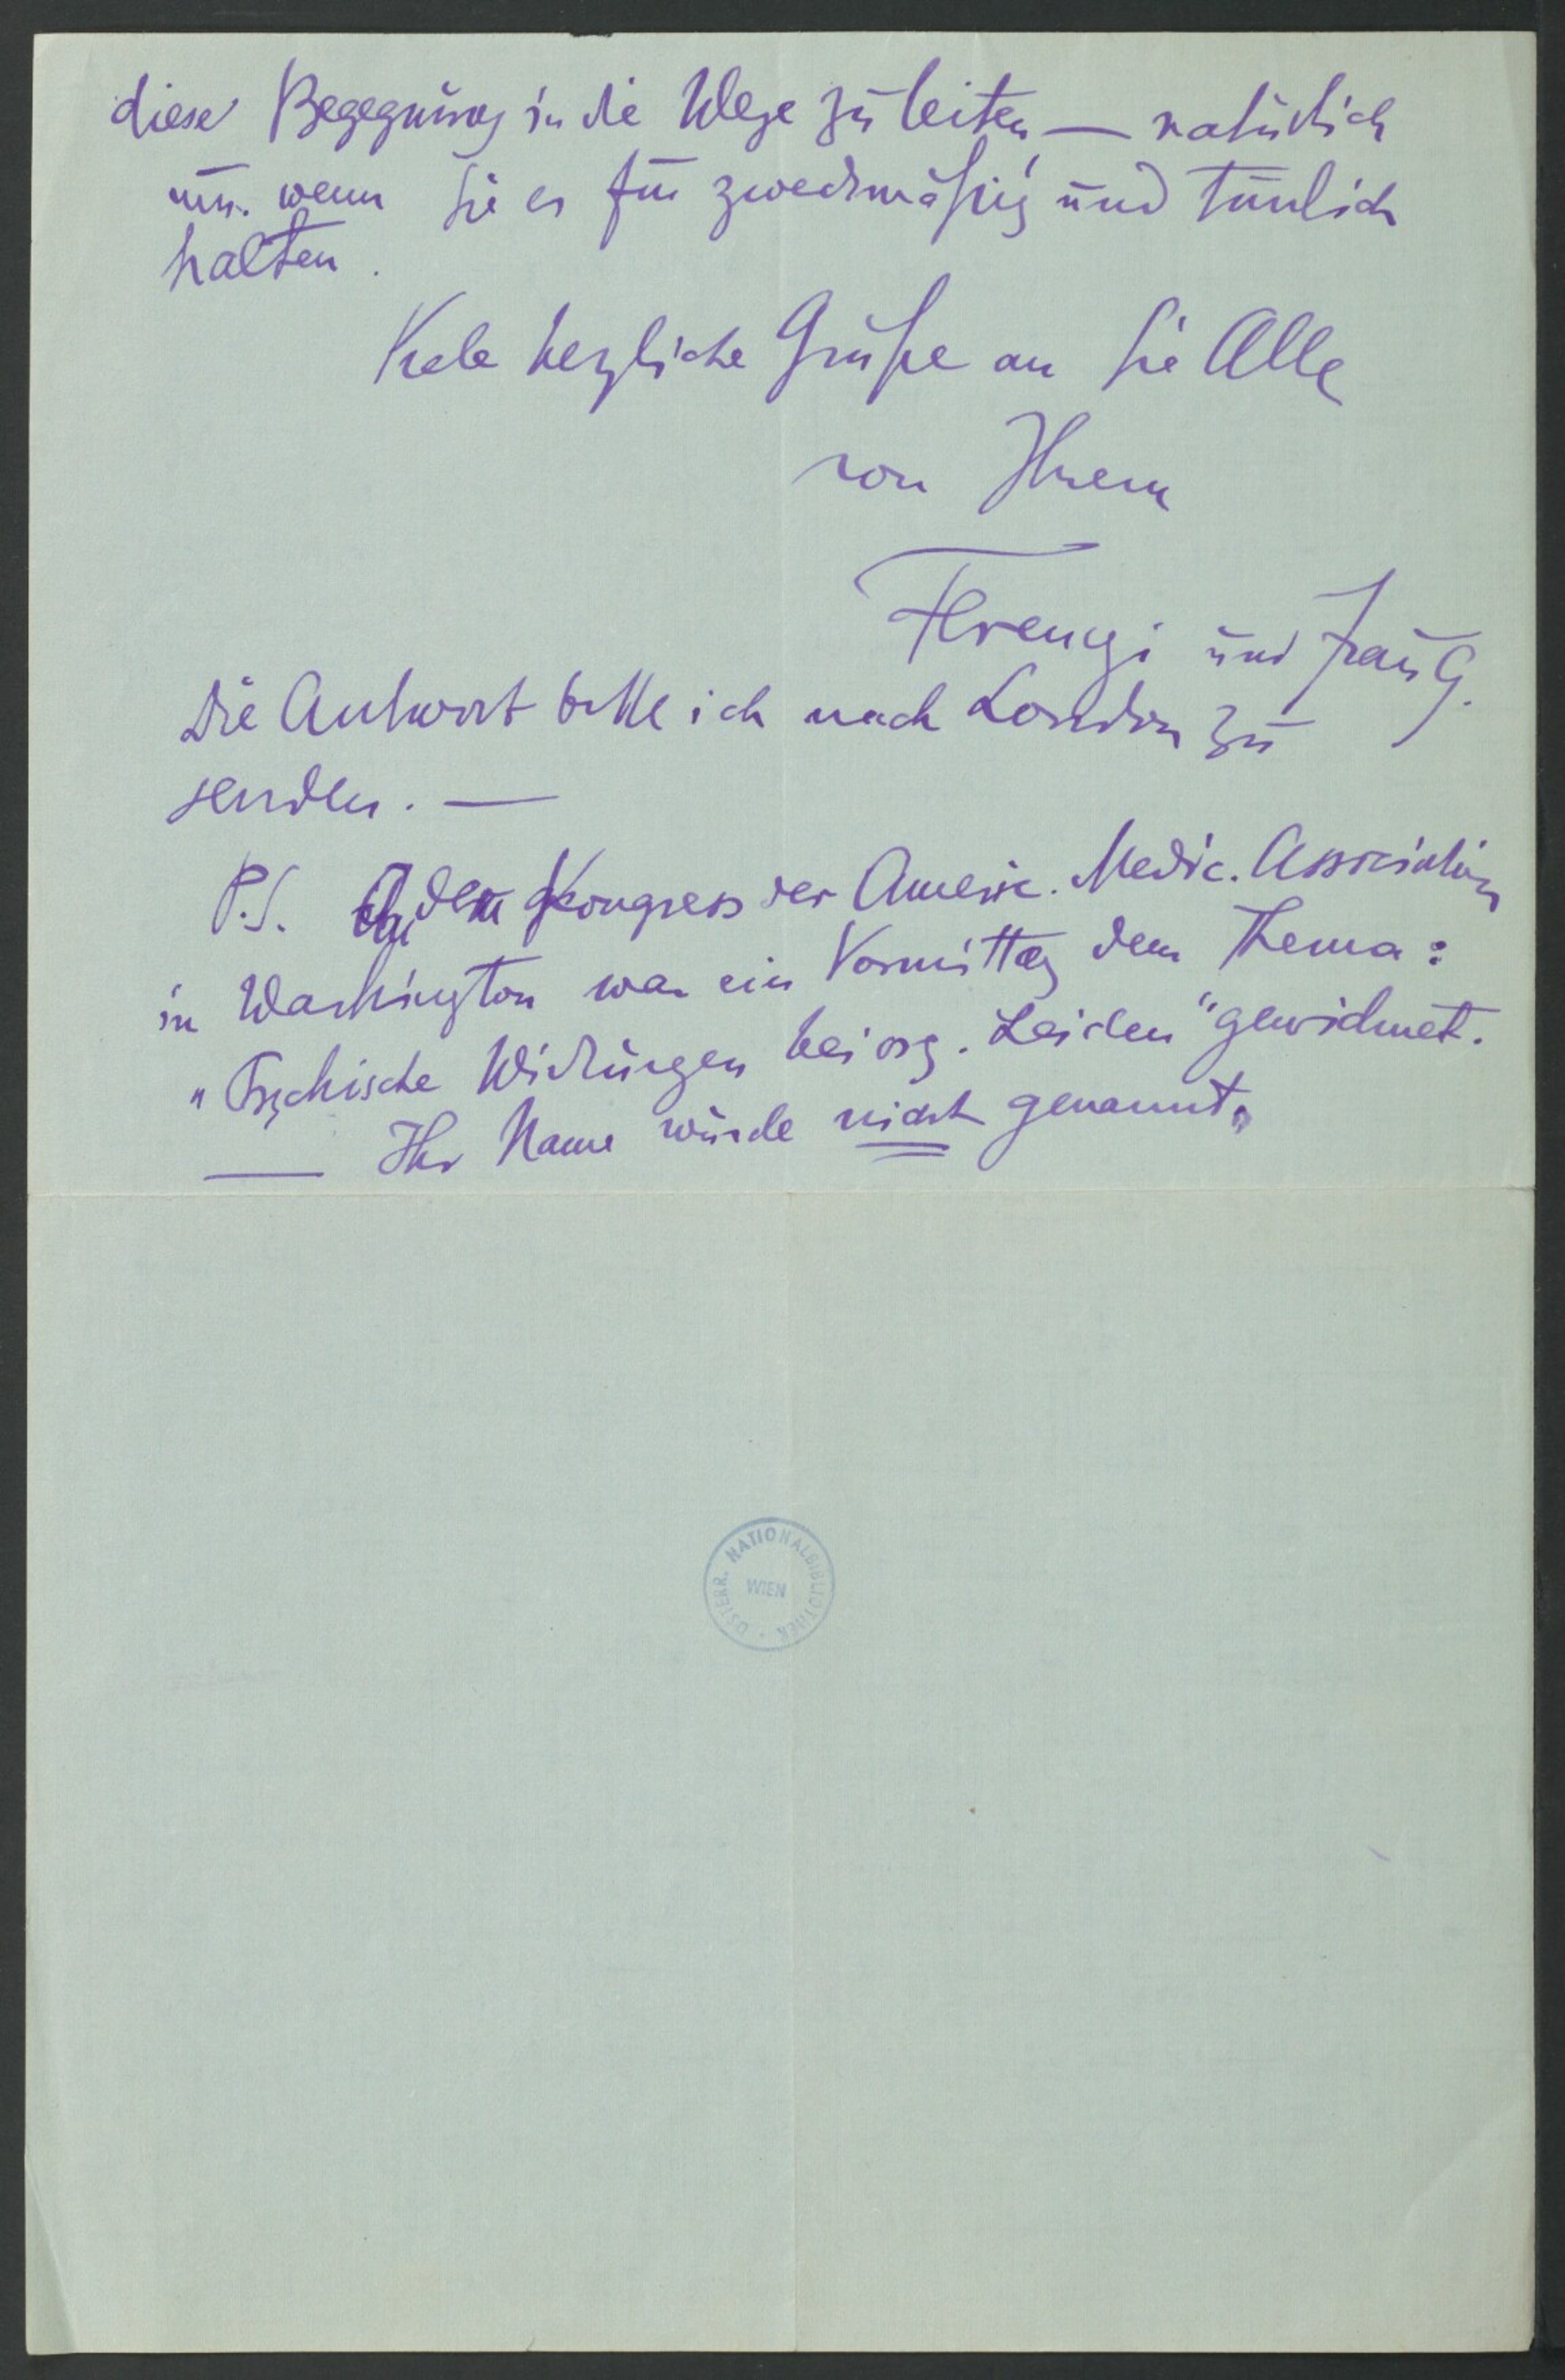 diese Begegnung in die Wege zu leiten — natürlich
nur wenn Sie es für zweckmäßig und tunlich
halten.
Viele herzliche Grüße an Sie Alle
von Ihrem
Ferenczi und Frau G.
Die Antwort bitte ich nach London zu
senden. —
P.S. An dem Kongress der Americ. Medic. Association
in Washington war ein Vormittag dem Thema:
„Psychische Wirkungen bei org. Leiden" gewidmet.
— Ihr Name wurde nicht genannt.
ÖSTERR. NATIONALBIBLIOTHEK
WIEN